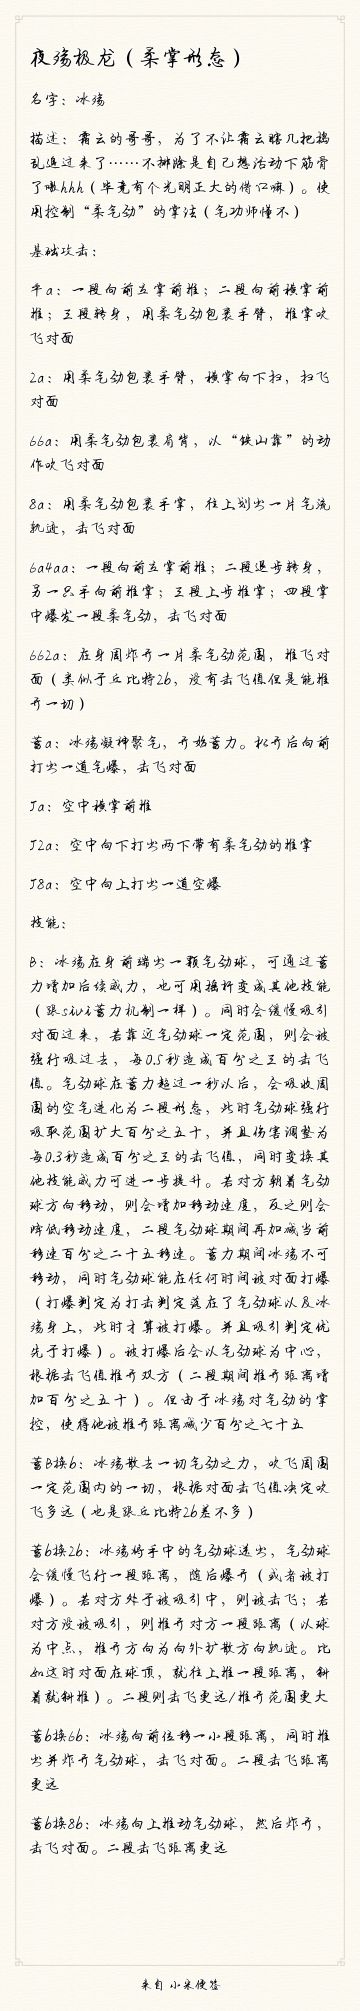 夜殇极龙（柔掌形态）
名字：冰殇
描述：霜云的哥哥，为了不让霜云瞎几把捣
乱追过来了……不排除是自己想活动下筋骨
了嗷hhh（毕竟有个光明正大的借口嘛）。使
用控制“柔气劲”的掌法（气功师懂不）
基础攻击：
平a：一段向前立掌前推；二段向前横掌前
推；三段转身，用柔气劲包裹手臂，推掌吹
飞对面
2a：用柔气劲包裹手臂，横掌向下扫，扫飞
对面
66a：用柔气劲包裹肩背，以“铁山靠”的动
作吹飞对面
8a：用柔气劲包裹手掌，往上划出一片气流
轨迹，击飞对面
6a4aa：一段向前立掌前推；二段退步转身，
另一只手向前推掌；三段上步推掌；四段掌
中爆发一段柔气劲，击飞对面
662a：在身周炸开一片柔气劲范围，推飞对
面（类似于丘比特2b，没有击飞值但是能推
开一切）
蓄a：冰殇凝神聚气，开始蓄力。松开后向前
打出一道气爆，击飞对面
Ja：空中横掌前推
J2a：空中向下打出两下带有柔气劲的推掌
J8a：空中向上打出一道空爆
技能：
B：冰殇在身前端出一颗气劲球，可通过蓄
力增加后续威力，也可用摇杆变成其他技能
（跟sivi蓄力机制一样）。同时会缓慢吸引
对面过来，若靠近气劲球一定范围，则会被
强行吸过去，每0.5秒造成百分之三的击飞
值。气劲球在蓄力超过一秒以后，会吸收周
围的空气进化为二段形态，此时气劲球强行
吸取范围扩大百分之五十，并且伤害调整为
每0.3秒造成百分之三的击飞值，同时变换其
他技能威力可进一步提升。若对方朝着气劲
球方向移动，则会增加移动速度，反之则会
降低移动速度，二段气劲球期间再加减当前
移速百分之二十五移速。蓄力期间冰殇不可
移动，同时气劲球能在任何时间被对面打爆
（打爆判定为打击判定落在了气劲球以及冰
殇身上，此时才算被打爆。并且吸引判定优
先于打爆）。被打爆后会以气劲球为中心，
根据击飞值推开双方（二段期间推开距离增
加百分之五十）。但由于冰殇对气劲的掌
控，使得他被推开距离减少百分之七十五
蓄B换b：冰殇散去一切气劲之力，吹飞周围
一定范围内的一切，根据对面击飞值决定吹
飞多远（也是跟丘比特2b差不多）
蓄b换2b：冰殇将手中的气劲球送出，气劲球
会缓慢飞行一段距离，随后爆开（或者被打
爆）。若对方处于被吸引中，则被击飞；若
对方没被吸引，则推开对方一段距离（以球
为中点，推开方向为向外扩散方向轨迹。比
如这时对面在球顶，就往上推一段距离，斜
着就斜推）。二段则击飞更远/推开范围更大
蓄b换6b：冰殇向前位移一小段距离，同时推
出并炸开气劲球，击飞对面。二段击飞距离
更远
蓄b换8b：冰殇向上推动气劲球，然后炸开，
击飞对面。二段击飞距离更远
来自 小米便签